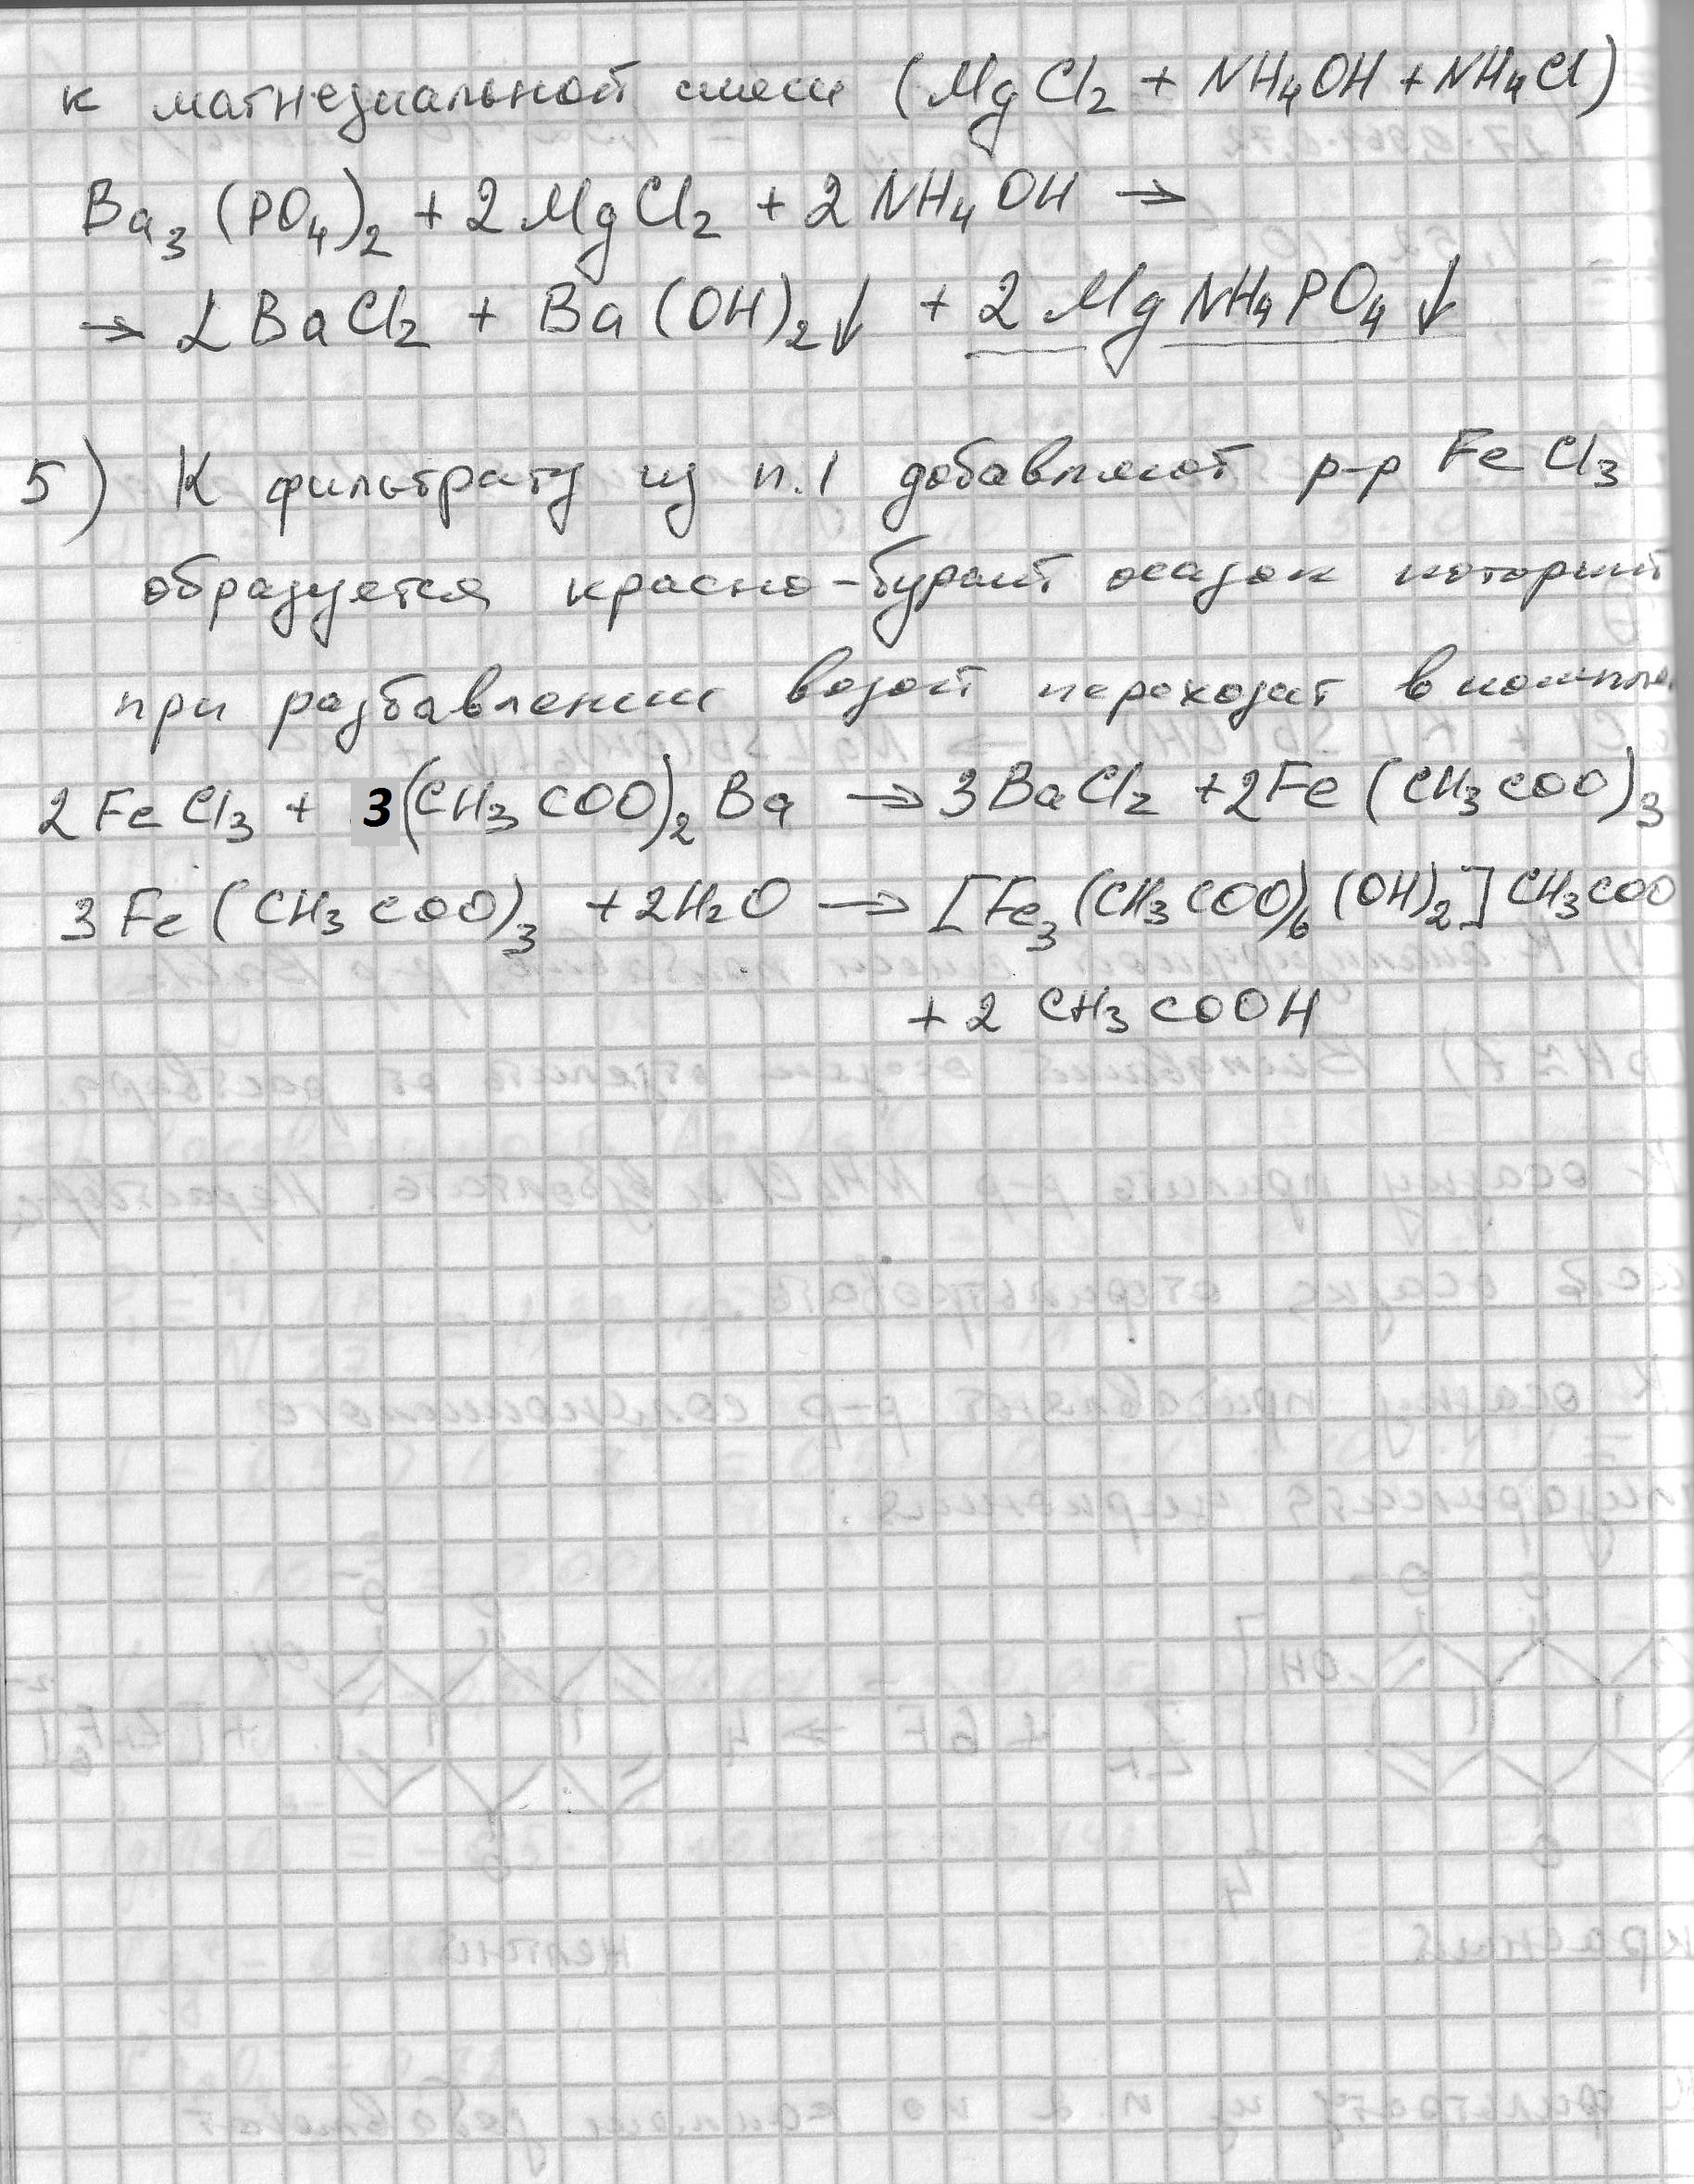 к магнезиальной смеси (MgCl₂ + NH₄OH + NH₄Cl)
Ba₃(PO₄)₂ + 2MgCl₂ + 2NH₄OH →
→ 2BaCl₂ + Ba(OH)₂↓ + 2MgNH₄PO₄↓
5) К фильтрату из п.1 добавляют р-р FeCl₃
образуется красно-бурый осадок который
при разбавлении водой переходит в компле
2FeCl₃ + 3(CH₃COO)₂Ba → 3BaCl₂ + 2Fe(CH₃COO)₃
3Fe(CH₃COO)₃ + 2H₂O → [Fe₃(CH₃COO)₆(OH)₂]CH₃COO
+ 2CH₃COOH